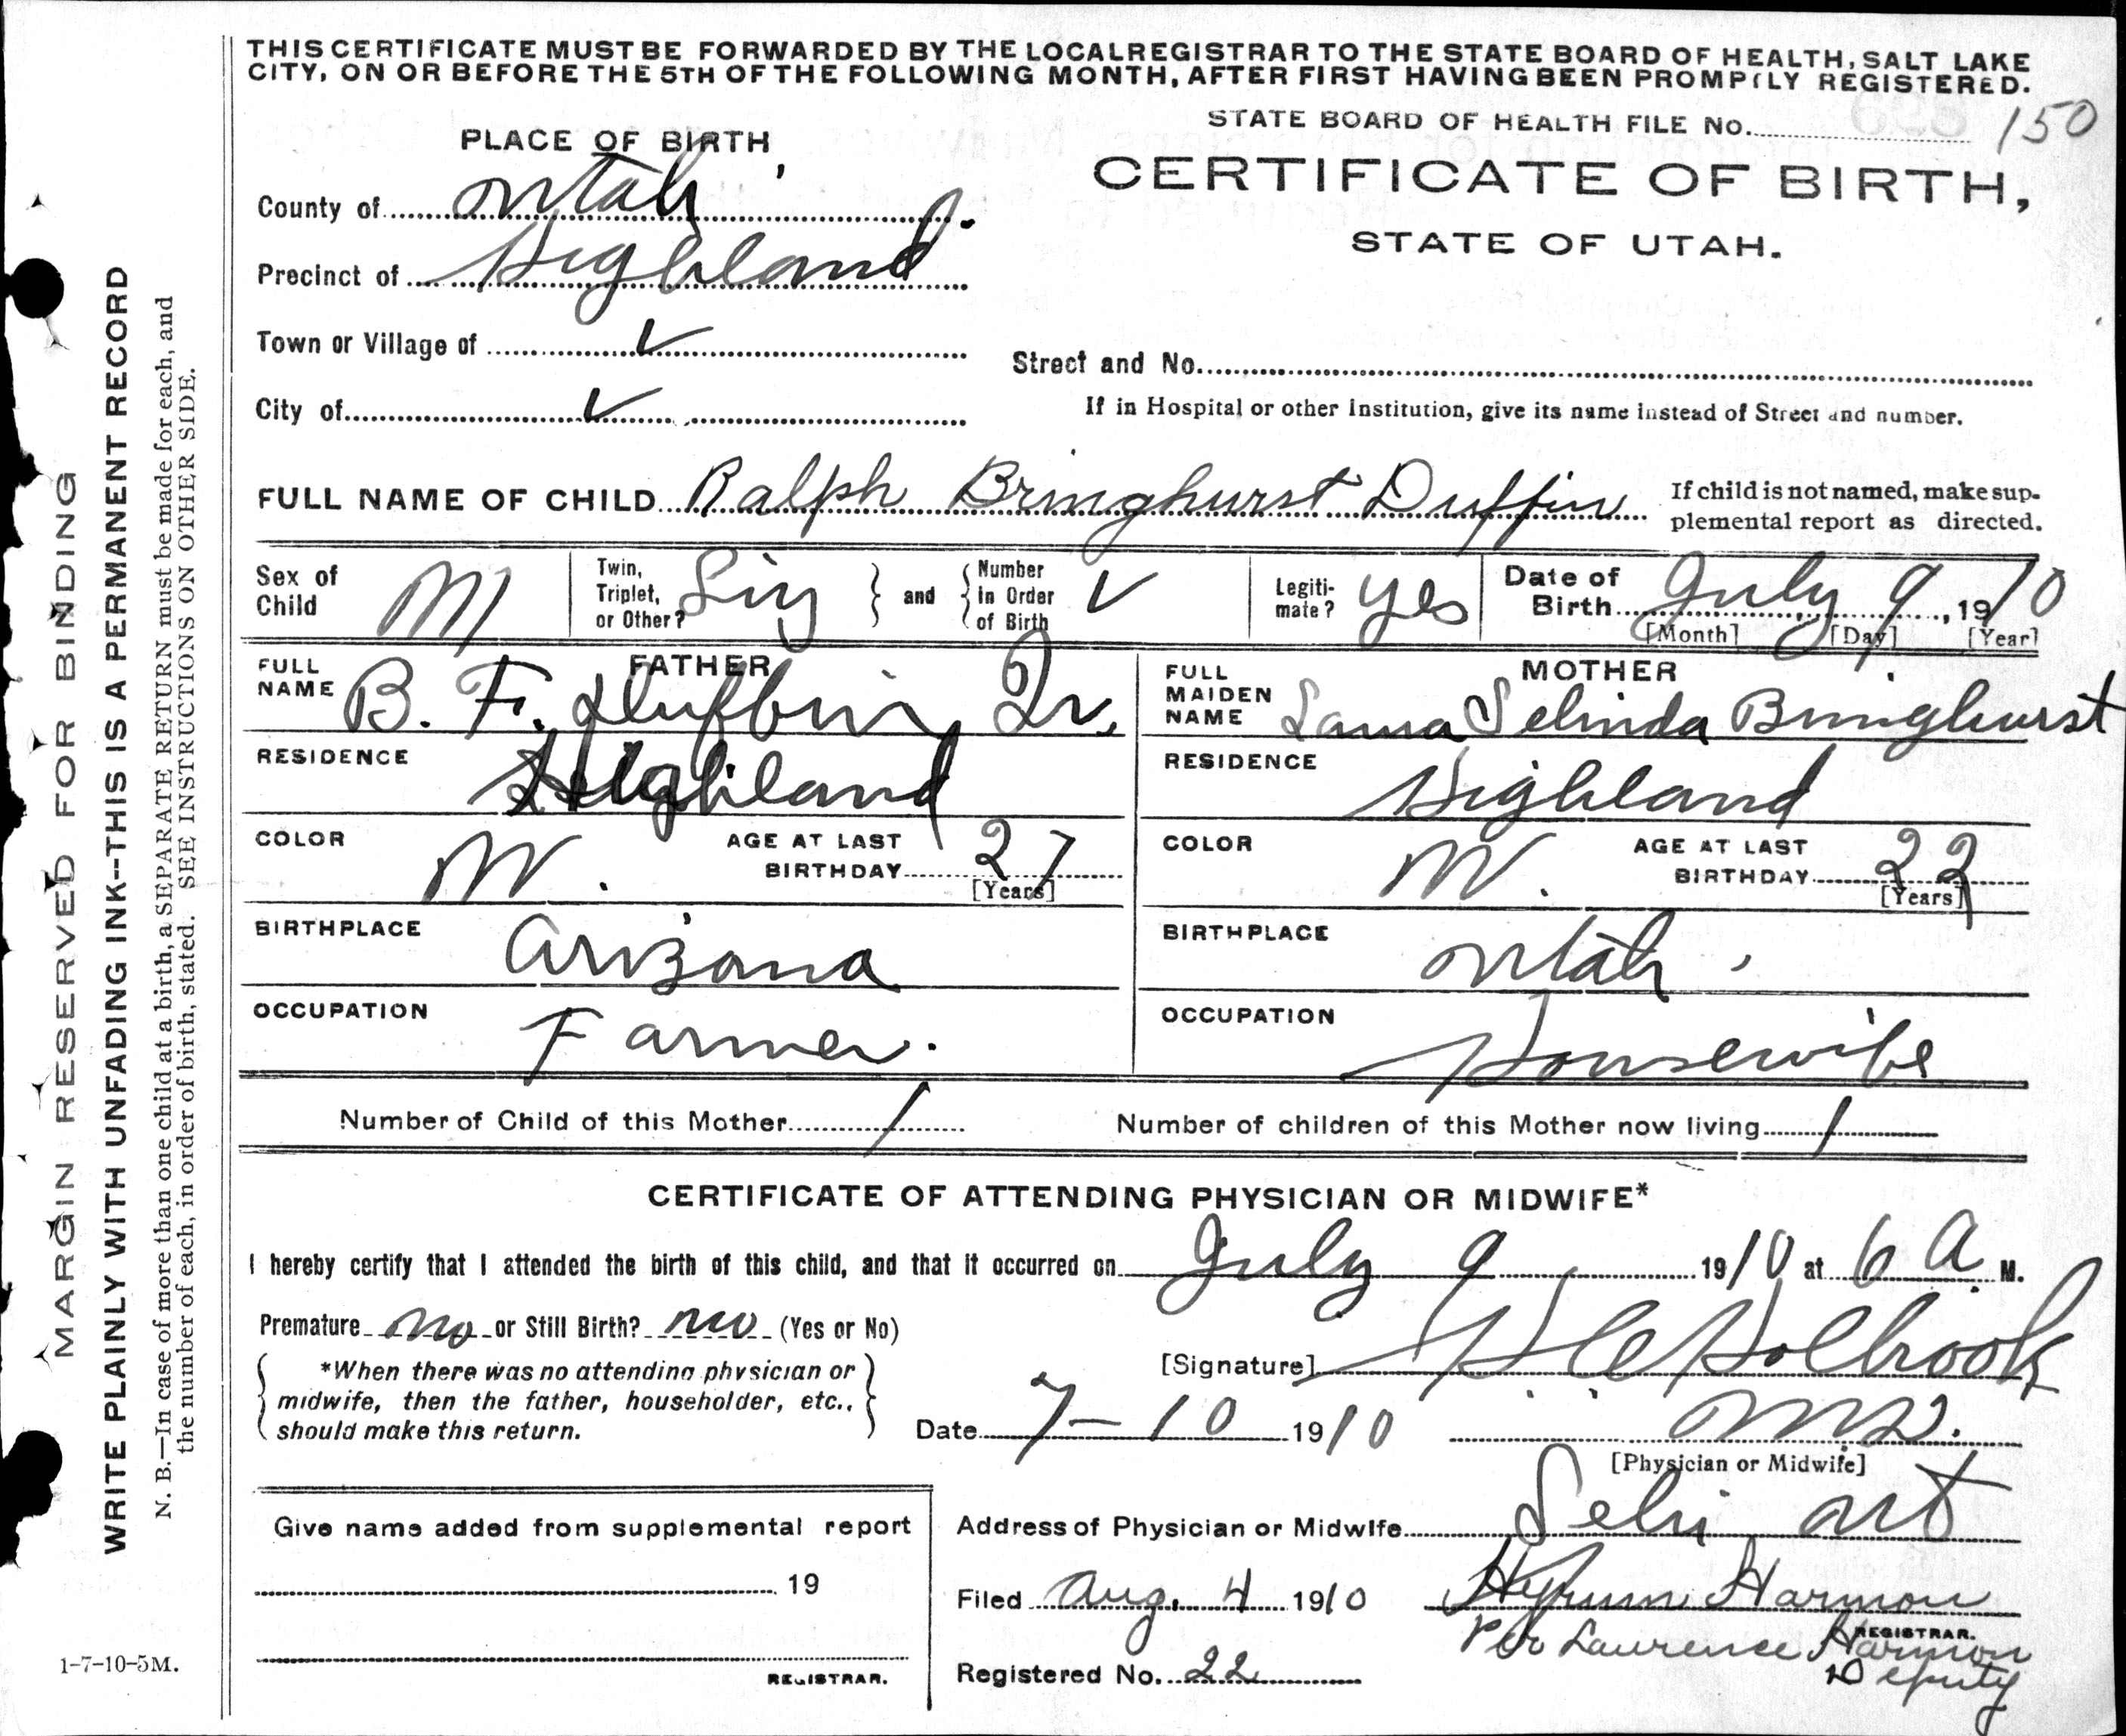 THIS CERTIFICATE MUST BE FORWARDED BY THE LOCAL REGISTRAR TO THE STATE BOARD OF HEALTH, SALT LAKE
CITY, ON OR BEFORE THE 5TH OF THE FOLLOWING MONTH, AFTER FIRST HAVING BEEN PROMPTLY REGISTERED.
STATE BOARD OF HEALTH FILE No. 150
PLACE OF BIRTH
CERTIFICATE OF BIRTH,
STATE OF UTAH.
County of Utah
Precinct of Highland
Town or Village of ✓
Street and No.
City of ✓
If in Hospital or other Institution, give its name instead of Street and number.
FULL NAME OF CHILD Ralph Bringhurst Duffin
If child is not named, make sup-
plemental report as directed.
Sex of Child M
Twin, Triplet, or Other? Sing and Number in Order of Birth ✓
Legiti-mate? yes
Date of Birth July 9, 1910
[Month] [Day] [Year]
FATHER
FULL NAME B. F. Duffin Jr.
RESIDENCE Highland
COLOR W. AGE AT LAST BIRTHDAY 27
[Years]
BIRTHPLACE Arizona
OCCUPATION Farmer.
MOTHER
FULL MAIDEN NAME Laura Selinda Bringhurst
RESIDENCE Highland
COLOR W. AGE AT LAST BIRTHDAY 22
[Years]
BIRTHPLACE Utah
OCCUPATION Housewife
Number of Child of this Mother 1
Number of children of this Mother now living 1
CERTIFICATE OF ATTENDING PHYSICIAN OR MIDWIFE*
I hereby certify that I attended the birth of this child, and that it occurred on July 9 1910 at 6 A M.
Premature no or Still Birth? no (Yes or No)
*When there was no attending physician or
midwife, then the father, householder, etc.,
should make this return.
[Signature] Holbrook
Date 7-10 1910
[Physician or Midwife]
Give name added from supplemental report
19
REGISTRAR.
Address of Physician or Midwife Lehi Ut
Filed Aug. 4 1910 Hyrum Harmon
REGISTRAR.
Per Laurence Harmon
Deputy
Registered No. 22
1-7-10-5M.
MARGIN RESERVED FOR BINDING
WRITE PLAINLY WITH UNFADING INK--THIS IS A PERMANENT RECORD
N. B.—In case of more than one child at a birth, a SEPARATE RETURN must be made for each, and
the number of each, in order of birth, stated. SEE INSTRUCTIONS ON OTHER SIDE.